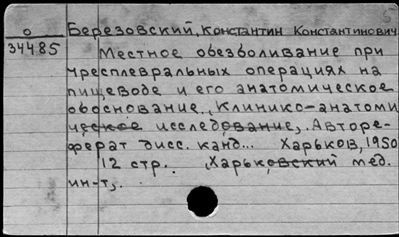 о Березовский, Константин Константинович
34485 Местное обезболивание при
чресплевральных операциях на
пищеводе и его анатомическое
обоснование. Клинико-анатоми
ческое исследование, Авторе-
ферат дисс. канд... Харьков, 1950
12 стр. (Харьковский мед.
ин-т).